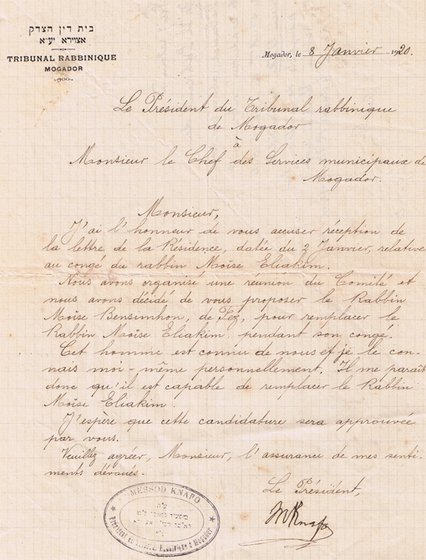 בית דין הצדק
אצוירא יע״א
TRIBUNAL RABBINIQUE
MOGADOR
Mogador, le 8 Janvier 1920.
Le Président du Tribunal rabbinique
de Mogador
à
Monsieur le Chef des Services municipaux de
Mogador.
Monsieur,
J'ai l'honneur de vous accuser réception de
la lettre de la Résidence, datée du 2 Janvier, relative
au congé du rabbin Moïse Eliakim.
Nous avons organisé une reunion du Comité et
nous avons décidé de vous proposer le Rabbin
Moïse Bensimhon, de Fez, pour remplacer le
Rabbin Moïse Eliakim, pendant son congé.
Cet homme est connu de nous et je le con-
nais moi-même personnellement. Il me parait
donc qu'il est capable de remplacer le Rabbin
Moïse Eliakim.
J'espère que cette candidature sera approuvée
par vous.
Veuillez agréer, Monsieur, l'assurance de mes senti-
ments dévoués.
Le Président,
MKnafo
MESSOD KNAFO
Président du Tribunal Rabbinique à Mogador